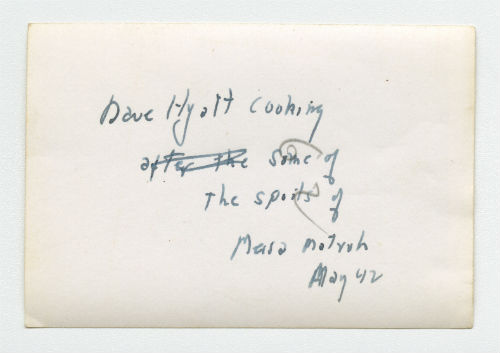 Dave Hyatt cooking
after the some of
the spoils of
Mersa Matruh
May 42